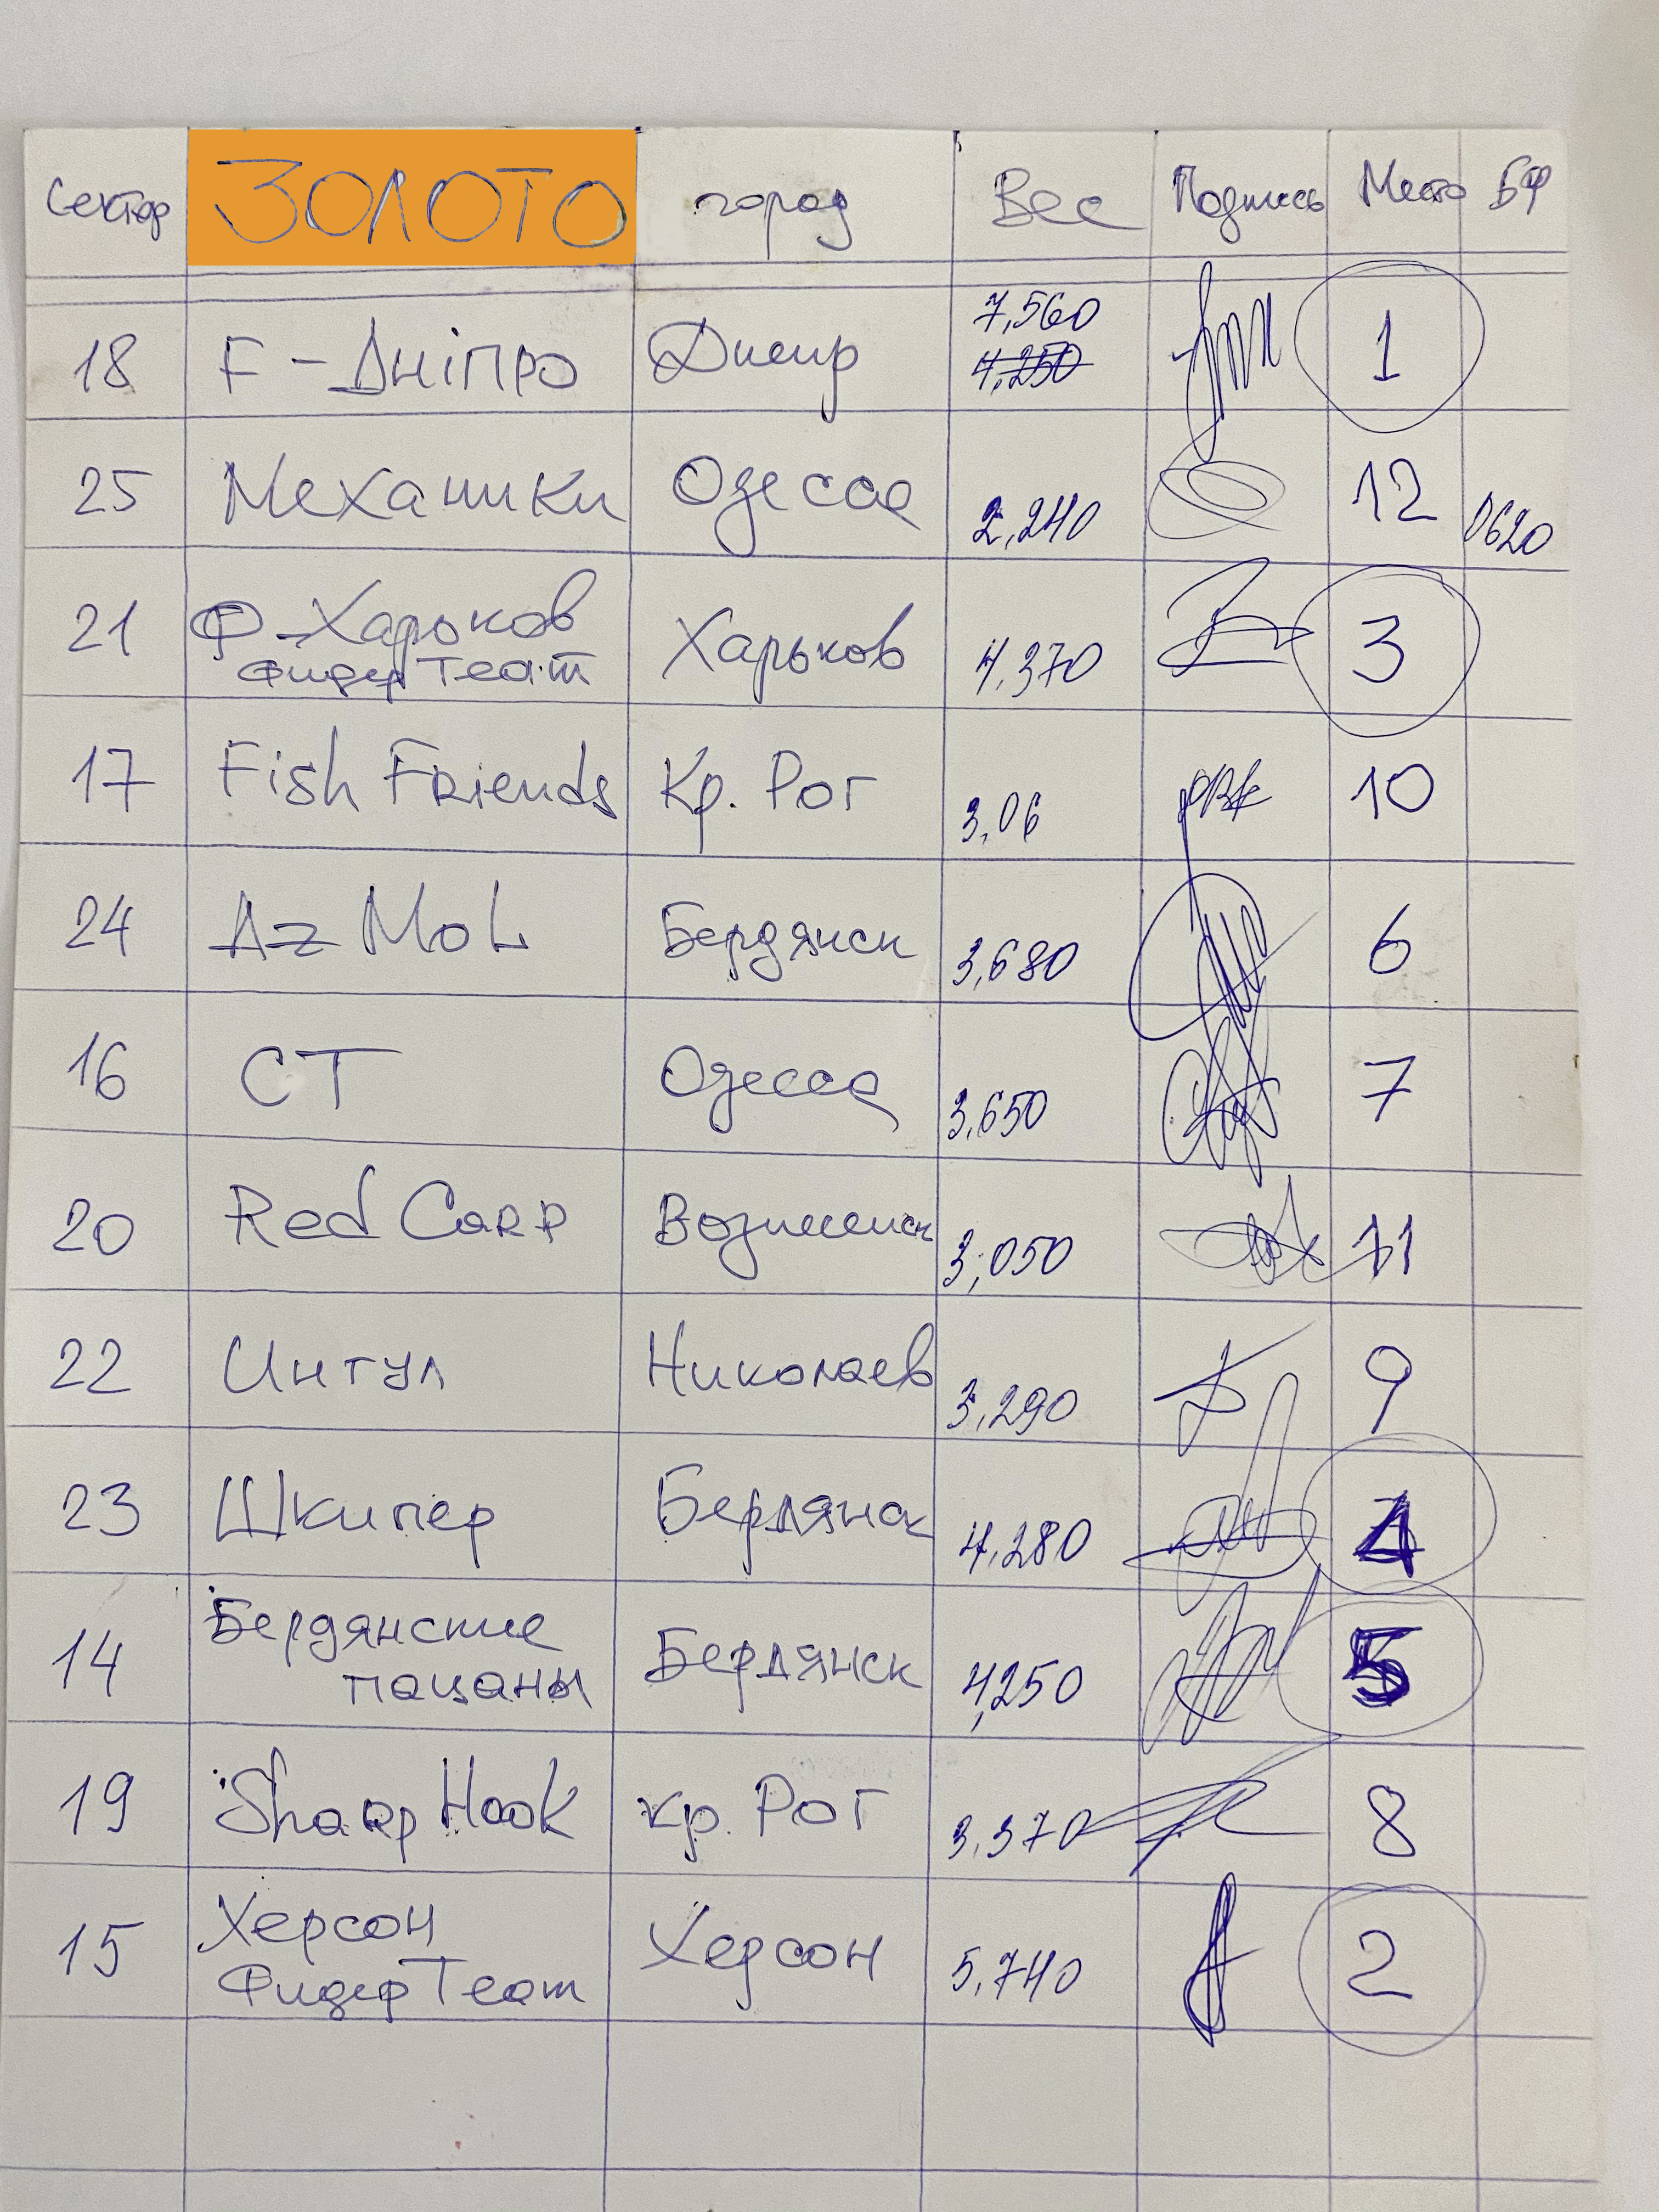 Сектор ЗОЛОТО город Вес Подпись Место БФ
7,560
18 F-Дніпро Днепр 4,250 1
25 Механики Одесса 2,240 12 0620
21 Ф-Харьков Харьков 4,370 3
Фидер Team
17 Fish Friends Кр. Рог 3,06 10
24 Az MoL Бердянск 3,680 6
16 СТ Одесса 3,650 7
20 Red Carp Вознесенск 3,050 11
22 Ингул Николаев 3,290 9
23 Шкипер Бердянск 4,280 4
14 Бердянские Бердянск 4,250 5
пацаны
19 Sharp Hook кр. Рог 3,370 8
15 Херсон Херсон 5,740 2
Фидер Team